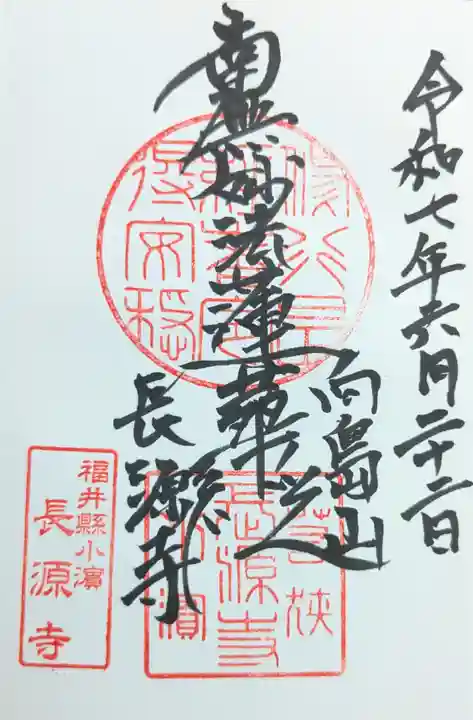 令和七年六月二十二日
向島山
南無妙法蓮華経
長源寺
得安穏
若狭
長源寺
小濱
福井縣小濱
長源寺